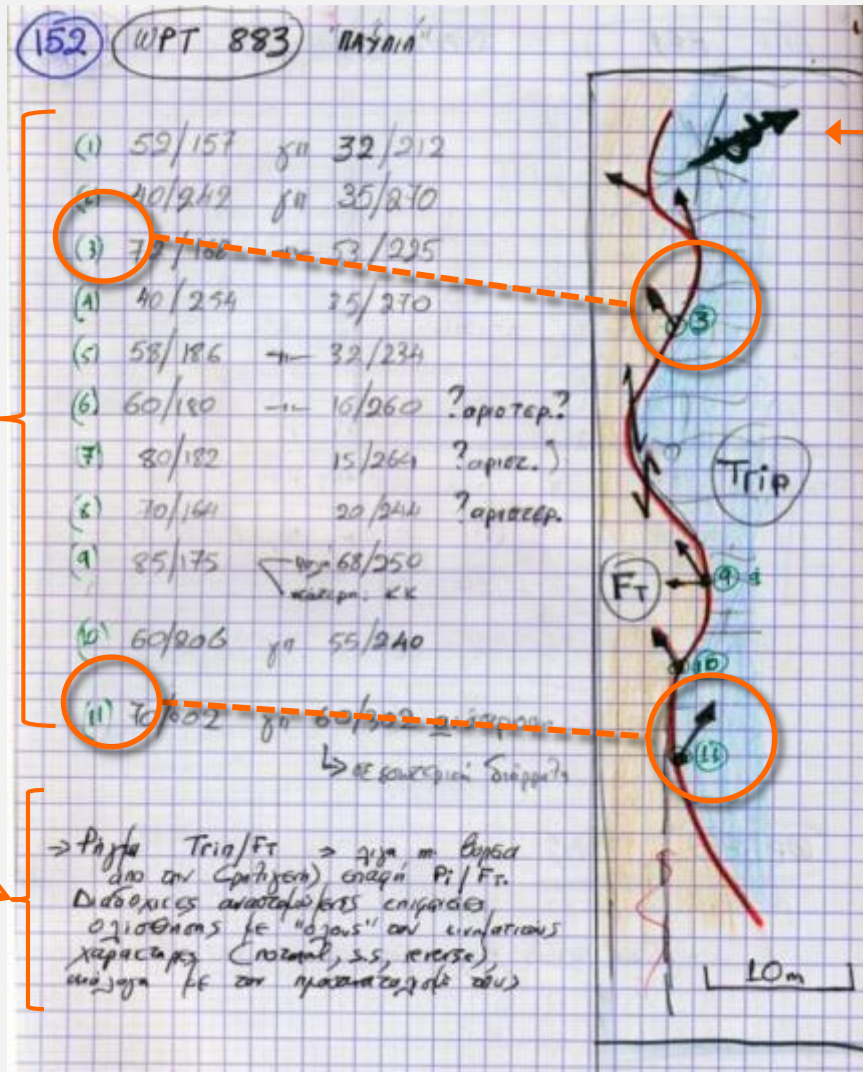 152 WPT 883 "ΠΑΥΛΙΑ"
(1) 52/157 γπ 32/212
40/242 γπ 35/270
(3)
(4) 40/254 35/270
(5) 58/186 -"- 32/234
(6) 60/180 -"- 16/260 ?αριστερ.?
(7) 80/182 15/264 ?αριστ.)
(8) 70/164 20/244 ?αριστερ.
(9) 85/175 68/250
κατεργ. ΚΚ
(10) 60/206 γπ 55/240
(11) γπ
↳ σε εσωτερική διάρρηξη
→ Ρήγμα Trip/FT → λίγα m βόρεια
απο την επαφή Pi/FT.
Διαδοχικές επιφάνειες
ολισθησης με "όλους" τους κινηματικούς
χαρακτήρες (normal, s.s, reverse),
ανάλογα με τον προσανατολισμό τους
3
Trip
FT
9
10
11
10m